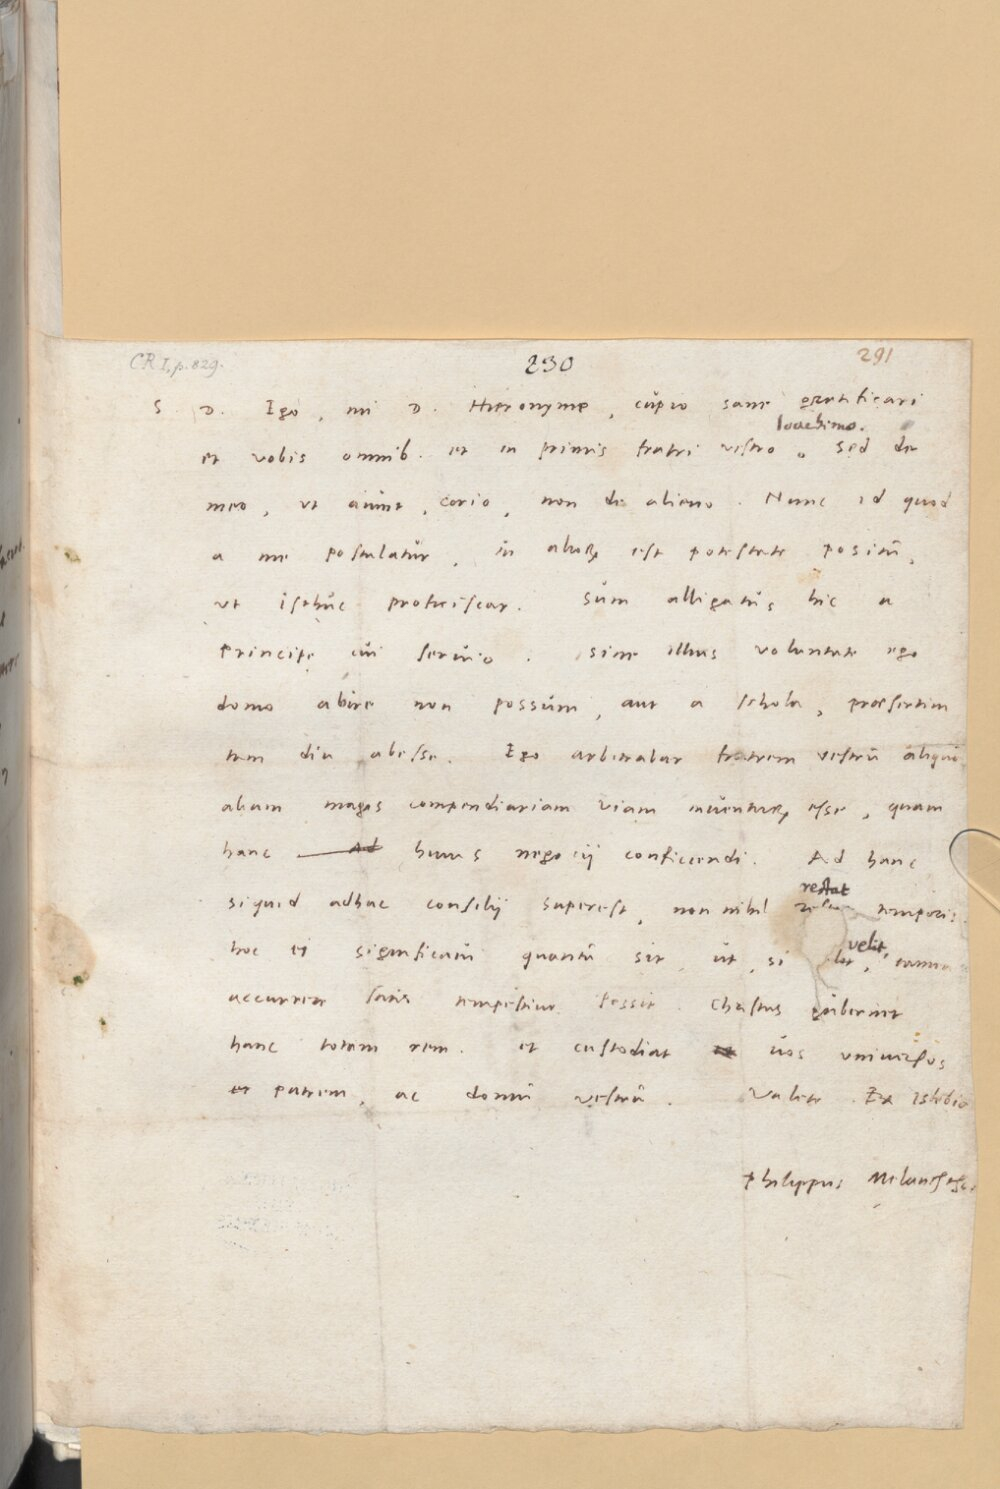 CR I, p. 829.
230
291
S. D. Ego, mi D. Hieronyme, cupio sane gratificari
Ioachimo.
et vobis omnib. et in primis fratri vestro. Sed de
meo, ut aiunt, corio, non de alieno. Nunc id quod
a me postulatur, in alioꝝ est potestate positū,
ut isthuc proficiscar. Sum alligatus hic a
Principe cui servio. sine illius voluntate ego
domo abire non possum, aut a schola, præsertim
tam diu abesse. Ego arbitrabar fratrem vestrū aliquā
aliam magis compendiariam viam inventuꝝ esse, quam
hanc Ad huius negocij conficiendi. Ad hanc
restat
siquid adhuc consilij superest, non nihil temporis.
velit,
hoc ei significavi quantū sit, ut, si
accurrere satis tempestive possit. Christus gubernet
hanc totam rem. et custodiat et vos universos
et patrem, ac domū vestrā. Valete. Ex Islebio
Philippus